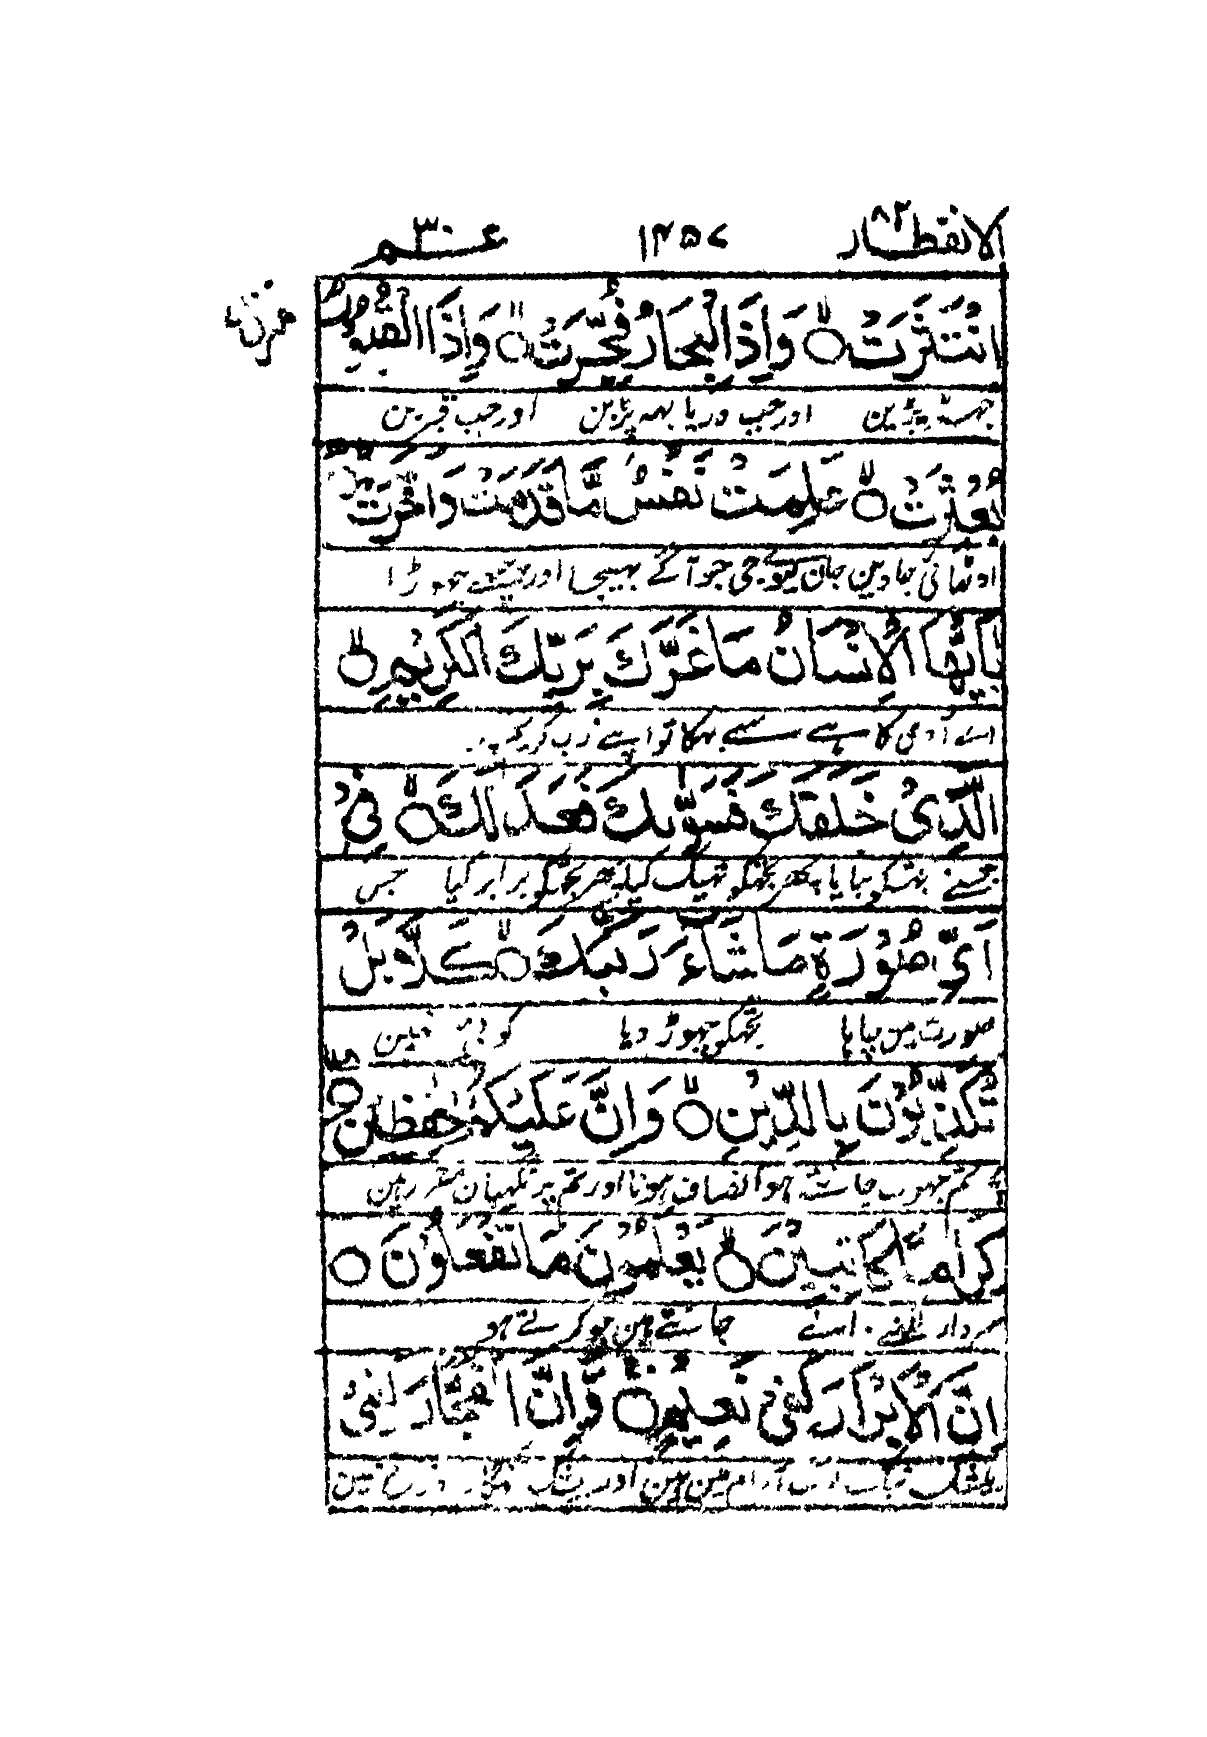 الانفطار ٨٢ ١٢٥٧ عم ٣٠
انْتَثَرَتْ ۝ وَاِذَا الْبِحَارُ فُجِّرَتْ ۝ وَاِذَا الْقُبُوْرُ
جھڑ پڑین اور جب دریا بہہ پڑین اور جب قبرین
بُعْثِرَتْ ۝ عَلِمَتْ نَفْسٌ مَّا قَدَّمَتْ وَاَخَّرَتْ
اوٹھائی جاوین جان لیوے جی جو آگے بھیجا اور پیچھے چھوڑا
يٰاَيُّهَا الْاِنْسَانُ مَا غَرَّكَ بِرَبِّكَ الْكَرِيْمِ ۝
اے آدمی کاہے سے بہکا تو اپنے رب کریم پر
الَّذِىْ خَلَقَكَ فَسَوّٰىكَ فَعَدَلَكَ ۝ فِىْ
جسنے تجھکو بنایا پھر تجھکو ٹھیک کیا پھر تجھکو برابر کیا جس
اَىِّ صُوْرَةٍ مَّا شَآءَ رَكَّبَكَ ۝ كَلَّا بَلْ
صورت مین چاہا تجھکو جوڑ دیا کوئی نہین
تُكَذِّبُوْنَ بِالدِّيْنِ ۝ وَاِنَّ عَلَيْكُمْ لَحٰفِظِيْنَ
پر تم جھوٹ جانتے ہو انصاف ہونا اور تم پر نگہبان مقرر ہین
كِرَامًا كٰتِبِيْنَ ۝ يَعْلَمُوْنَ مَا تَفْعَلُوْنَ ۝
سردار لکھنے والے جانتے ہین جو کرتے ہو
اِنَّ الْاَبْرَارَ لَفِىْ نَعِيْمٍ ۝ وَّاِنَّ الْفُجَّارَ لَفِىْ
بیشک نیک لوگ آرام مین ہین اور بیشک گنہگار دوزخ مین